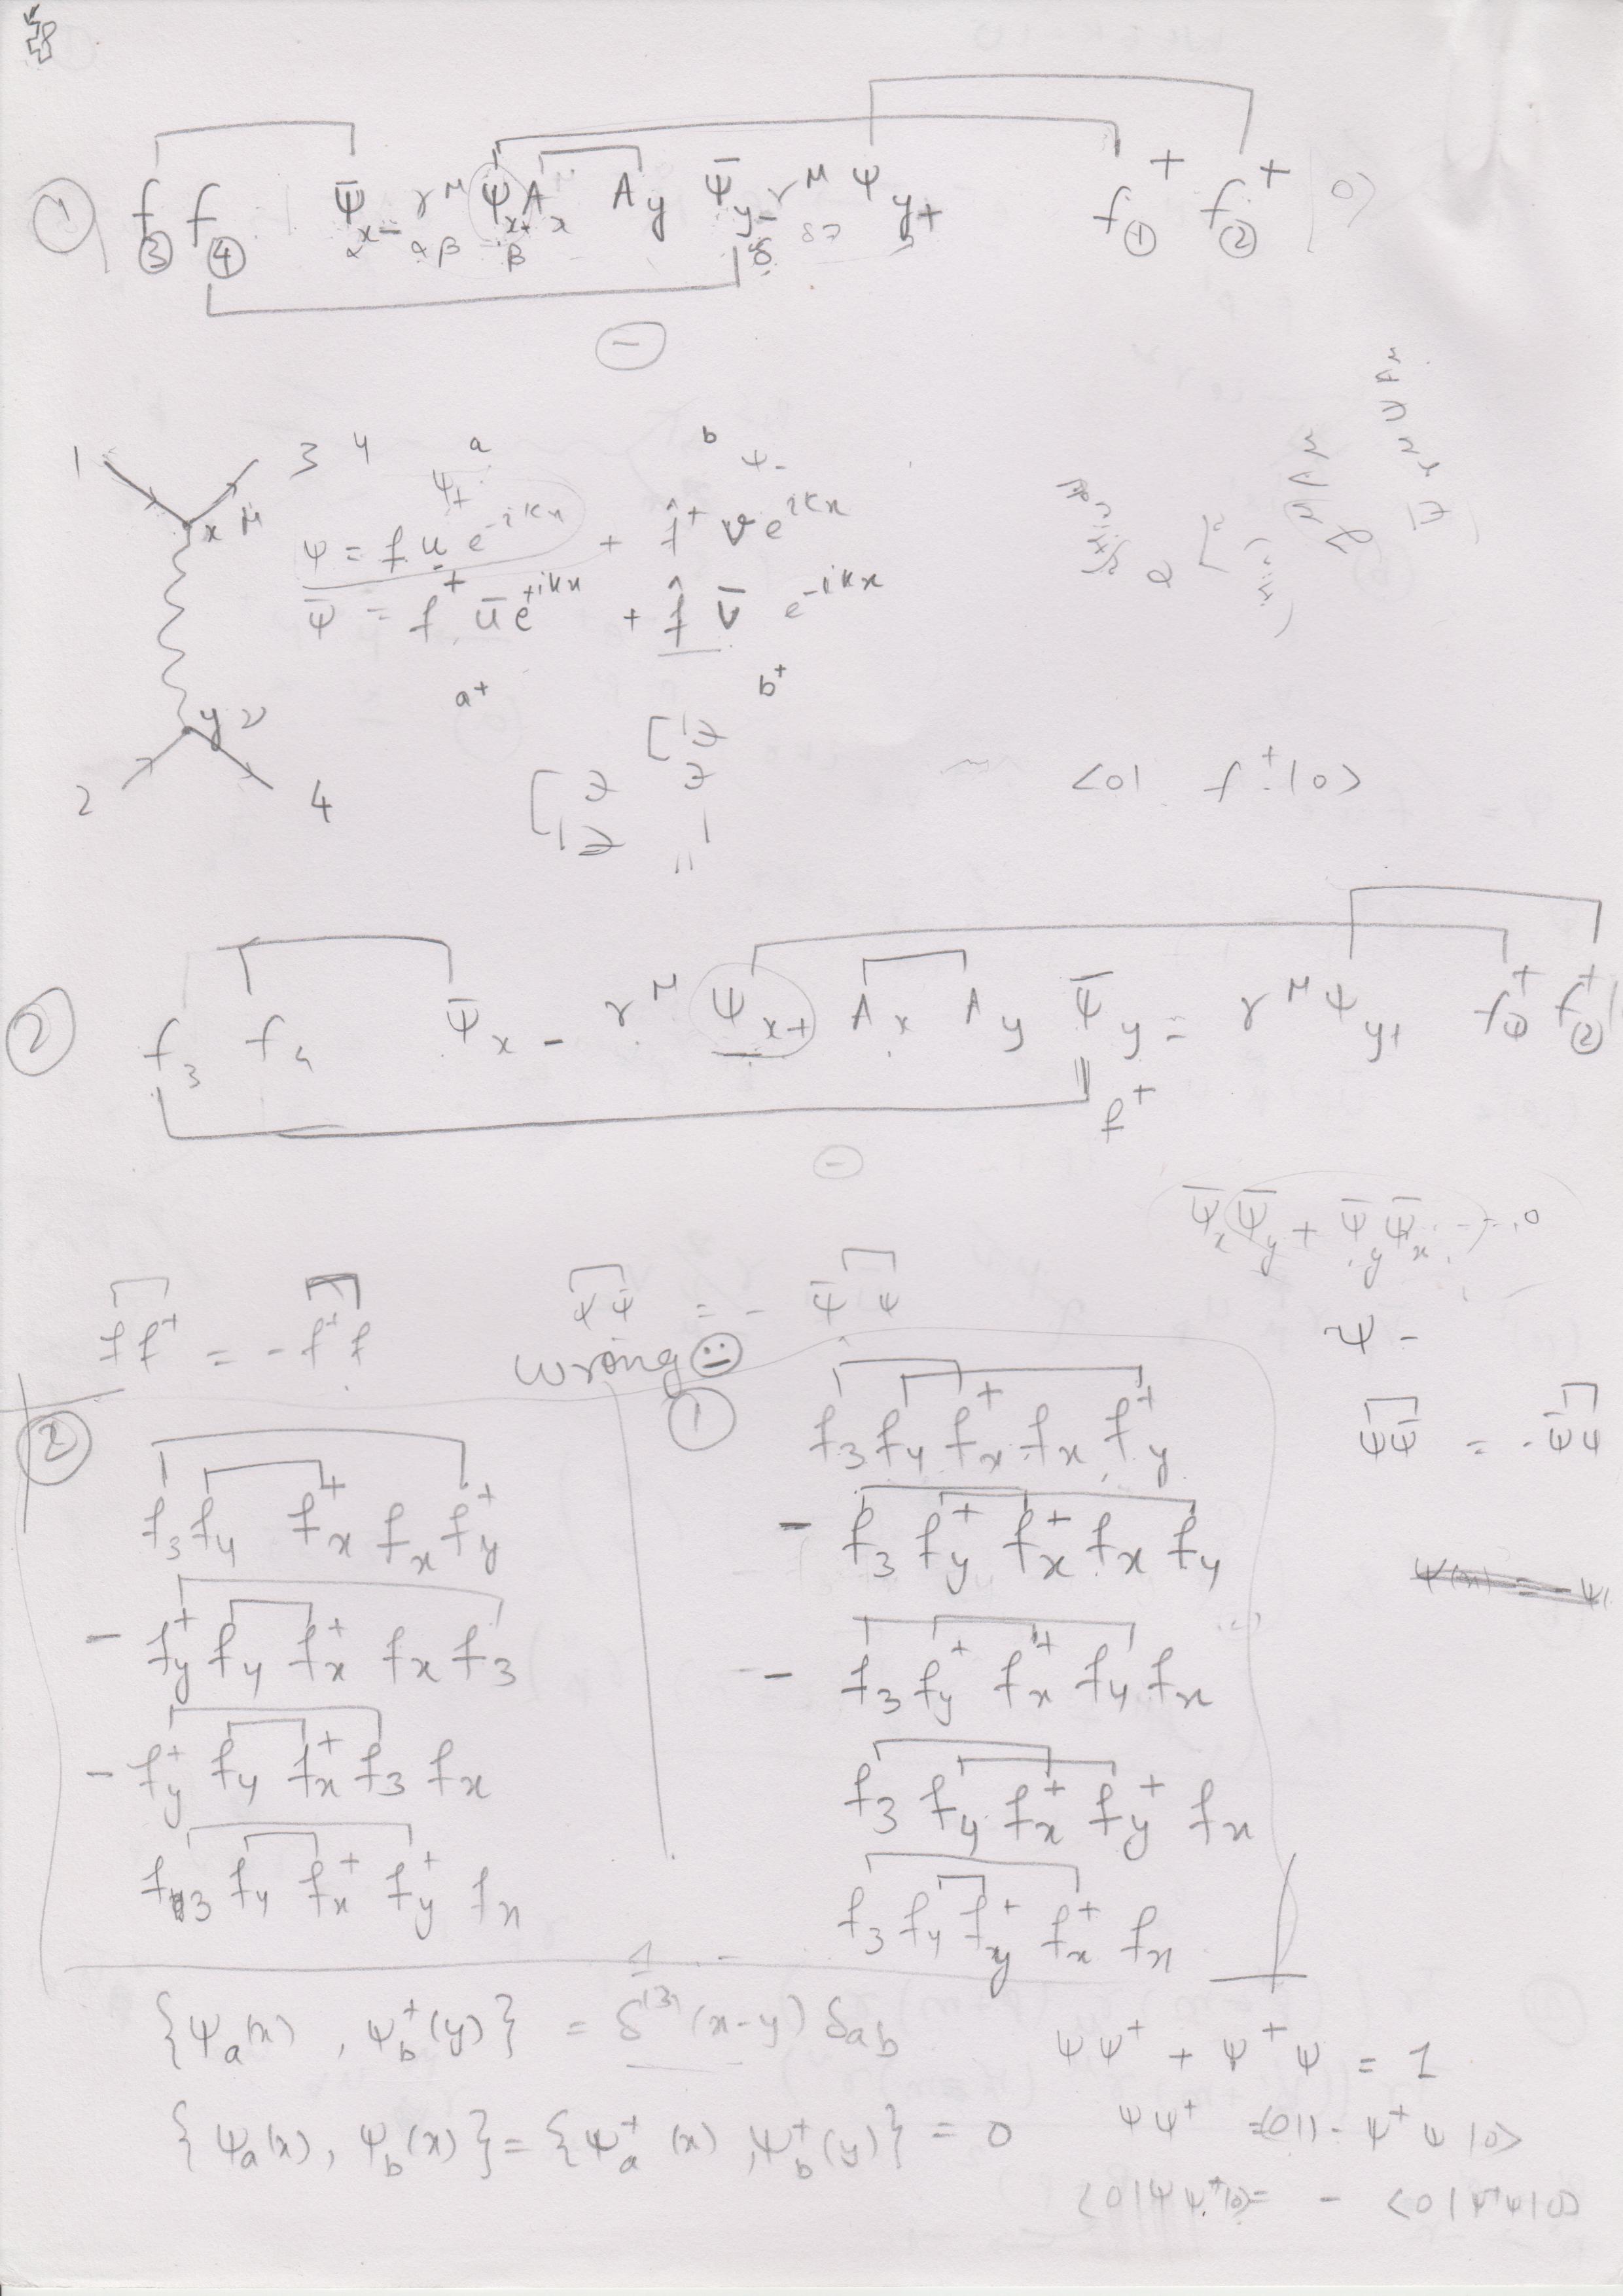 ① f③ f④ ψ̄ₓ₋ γ^μ ψₓ₊ Aₓ A_y ψ̄_y₋ γ^μ ψ_y₊ f①⁺ f②⁺ |0⟩
α αβ β δ
⊖
1 3 4 a b
ψ₊ ψ₋
x μ
ψ = f u e^{-ikx} + f̂⁺ v e^{ikx}
ψ̄ = f⁺ ū e^{+ikx} + f̂ v̄ e^{-ikx}
a⁺ b⁺
y ν
2 4
<0| f⁺ |0>
② f₃ f₄ ψ̄ₓ₋ γ^μ ψₓ₊ Aₓ A_y ψ̄_y₋ γ^μ ψ_y₊ f①⁺ f②⁺
f⁺
⊖
ψ̄ₓ ψ̄_y + ψ̄_y ψ̄ₓ = 0
f f⁺ = - f⁺ f ψ ψ̄ = - ψ̄ ψ
ψ -
wrong ☺
ψ ψ̄ = - ψ̄ ψ
②
f₃ f₄ fₓ⁺ fₓ f_y⁺
- f_y⁺ f₄ fₓ⁺ fₓ f₃
- f_y⁺ f₄ fₓ⁺ f₃ fₓ
f₃ f₄ fₓ⁺ f_y⁺ fₓ
①
f₃ f₄ fₓ⁺ fₓ f_y⁺
- f₃ f_y⁺ fₓ⁺ fₓ f₄
- f₃ f_y⁺ fₓ⁺ f₄ fₓ
f₃ f₄ fₓ⁺ f_y⁺ fₓ
f₃ f₄ f_y⁺ fₓ⁺ fₓ
{ψ_a(x), ψ_b⁺(y)} = δ⁽³⁾(x-y) δ_ab
{ψ_a(x), ψ_b(x)} = {ψ_a⁺(x), ψ_b⁺(y)} = 0
ψψ⁺ + ψ⁺ψ = 1
ψψ⁺ = <0|1 - ψ⁺ψ|0>
<0|ψψ⁺|0> = - <0|ψ⁺ψ|0>